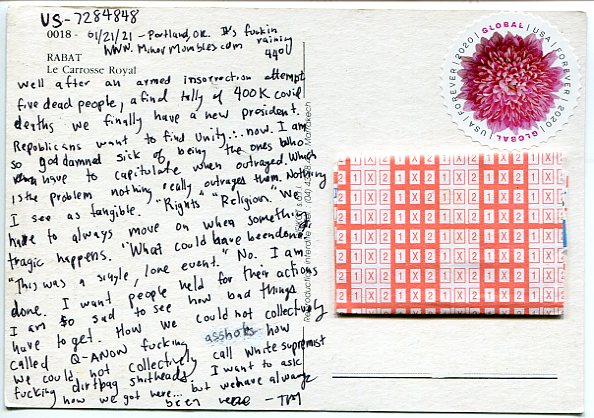 US-7284848
0018 - 01/21/21 - Portland, OR. It's fuckin
www.MinorMumbles.com raining
440
RABAT
Le Carrosse Royal
Well after an armed insorrection attempt
five dead people, a final tally of 400K covid
deaths we finally have a new president.
Republicans want to find Unity... now. I am
so goddamned sick of being the ones who
have to capitulate when outraged. Which
is the problem nothing really outrages them. Nothing
I see as tangible. "Rights" "Religion." We
have to always move on when something
tragic happens. "What could have been done?"
"This was a single, lone event." No. I am
done. I want people held for their actions
I am so sad to see how bad things
have to get. How we could not collectively
called Q-ANON fucking assholes how
we could not collectively call white supremist
fucking dirtbag shitheads. I want to ask
how we got here... but we have always
been here -TM
GLOBAL | USA | FOREVER | 2020 | GLOBAL | USA | FOREVER | 2020
1 X 2 1 X 2 1 X 2 1 X 2 1 X 2
1 X 2 1 X 2 1 X 2 1 X 2 1 X 2
1 X 2 1 X 2 1 X 2 1 X 2 1 X 2
1 X 2 1 X 2 1 X 2 1 X 2 1 X 2
1 X 2 1 X 2 1 X 2 1 X 2 1 X 2
1 X 2 1 X 2 1 X 2 1 X 2 1 X 2
1 X 2 1 X 2 1 X 2 1 X 2 1 X 2
1 X 2 1 X 2 1 X 2 1 X 2 1 X 2